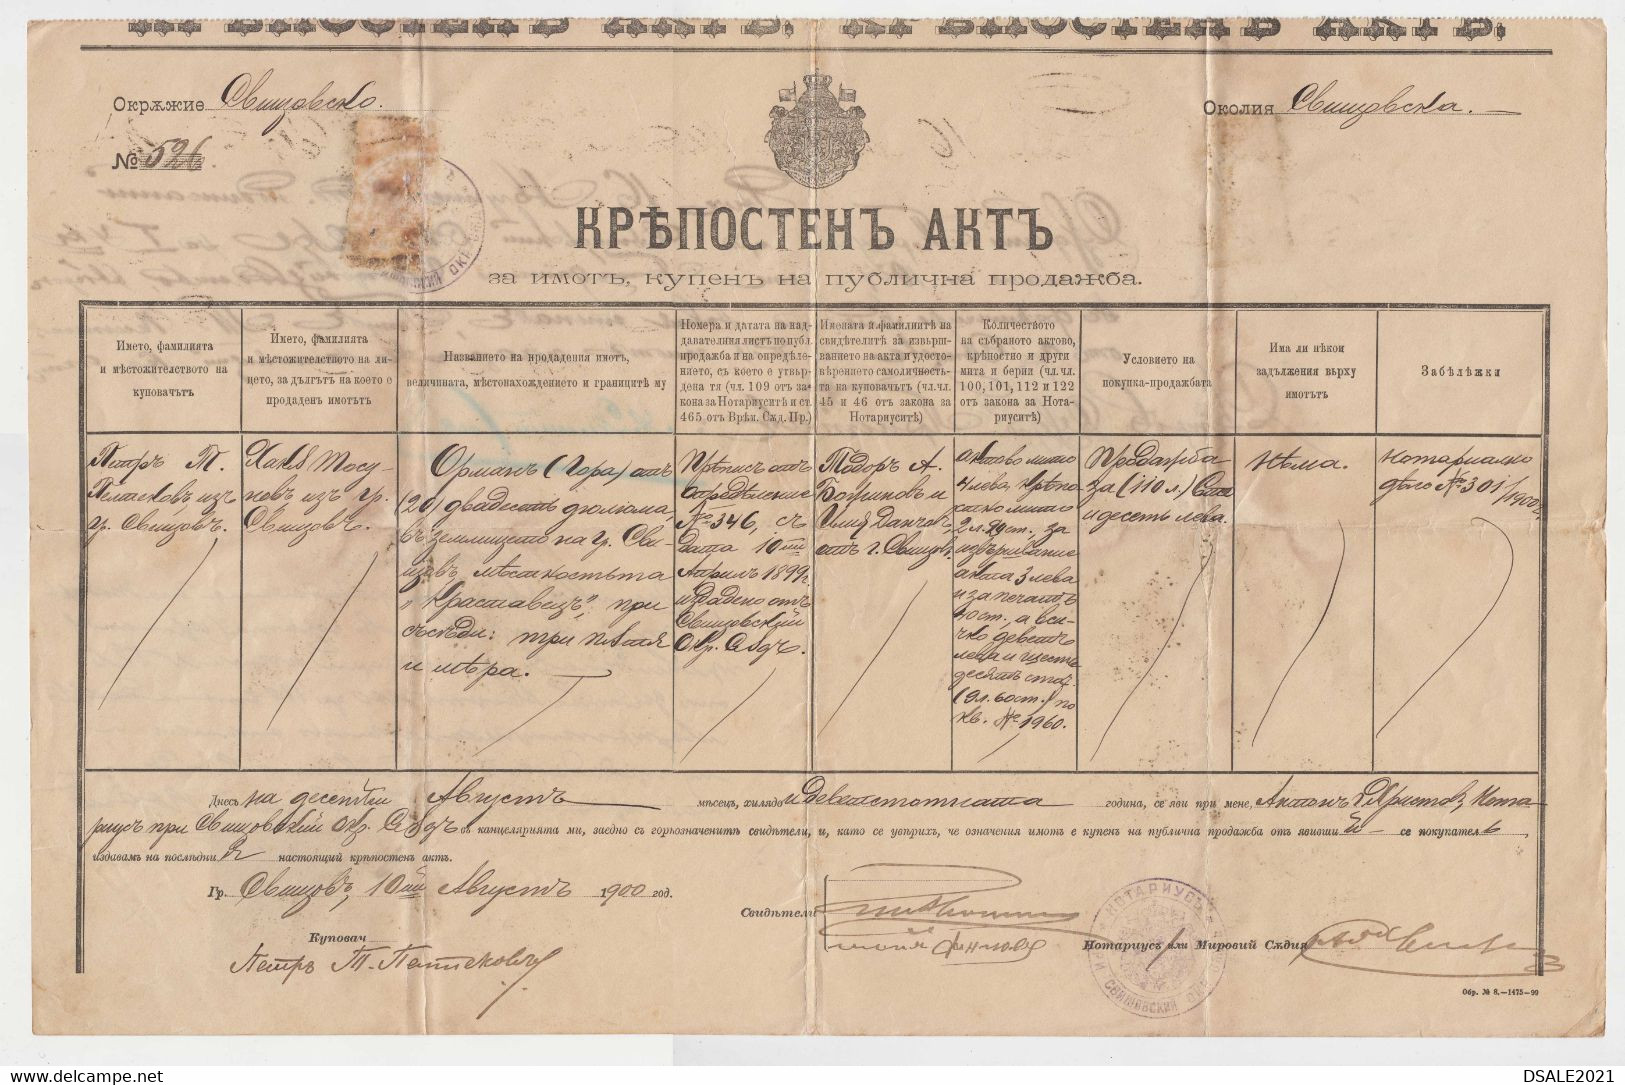 КРѢПОСТЕНЪ АКТЪ. КРѢПОСТЕНЪ АКТЪ.
Окрѫжие Свищовско.
Околия Свищовска.
№ 526.
КРѢПОСТЕНЪ АКТЪ
за имотъ, купенъ на публична продажба.
Името, фамилията
и мѣстожителството на
куповачътъ
Името, фамилията
и мѣстожителството на ли-
цето, за дългътъ на което е
продаденъ имотътъ
Названието на продадения имотъ,
величината, мѣстонахождението и границитѣ му
Номера и датата на над-
давателния листъ по публ.
продажба и на опредѣле-
нието, съ което е утвър-
дена тя (чл. 109 отъ за-
кона за Нотариуситѣ и ст.
465 отъ Врѣм. Сѫд. Пр.)
Имената и фамилиитѣ на
свидѣтелитѣ за извърш-
ванието на акта и удосто-
вѣрението самоличность-
та на куповачътъ (чл.чл.
45 и 46 отъ закона за
Нотариуситѣ)
Количеството
на събраното актово,
крѣпостно и други
мита и берии (чл.чл.
100, 101, 112 и 122
отъ закона за Нота-
риуситѣ)
Условието на
покупка-продажбата
Има ли нѣкои
задължения върху
имотътъ
Забѣлѣжки
Петръ Т.
изъ
гр. Свищовъ.
изъ гр.
Свищовъ.
Орманъ (Гора) отъ
(20) двадесетъ дюлюма,
въ землището на гр. Сви-
щовъ, мѣстностьта
„Краставецъ", при
съсѣди: три пѫтя
и мѣра.
Прѣписъ отъ
опредѣление
№ 346, съ
дата 10ий
Априлъ 1899 г.
издадено отъ
Свищовский
Окр. Сѫдъ.
Тодоръ А.
и
Илия Данчовъ
отъ г. Свищовъ.
актово мито
4 лева, крѣпо-
стно мито
2 л. 20 ст., за
извършвание
акта 3 лева
и за печатъ
40 ст., а вси-
чко деветь
лева и шесть
десятъ стот.
(9 л. 60 ст.) по
кв. № 1960.
Продажба
за (110 л.) Сто
и десеть лева.
Нѣма.
Нотариално
дѣло № 301/1900 г.
Днесъ на десетий Августъ мѣсецъ, хилядо и деветстотната година, се яви при мене, Антонъ Христовъ, Нота-
риусъ при Свищовский Окр. Сѫдъ въ канцелярията ми, заедно съ горѣозначенитѣ свидѣтели, и, като се увѣрихъ, че означения имотъ е купенъ на публична продажба отъ явивший се покупатель,
издавамъ на послѣдни й настоящий крѣпостенъ актъ.
Гр. Свищовъ, 10ий Августъ 1900 год.
Свидѣтели
Куповач
Петръ Т.
Нотариусъ или Мировий Сѫдия
НОТАРИУСЪ ПРИ СВИЩОВСКИЙ ОКР.
Обр. № 8.—1475—99
www.delcampe.net
DSALE2021